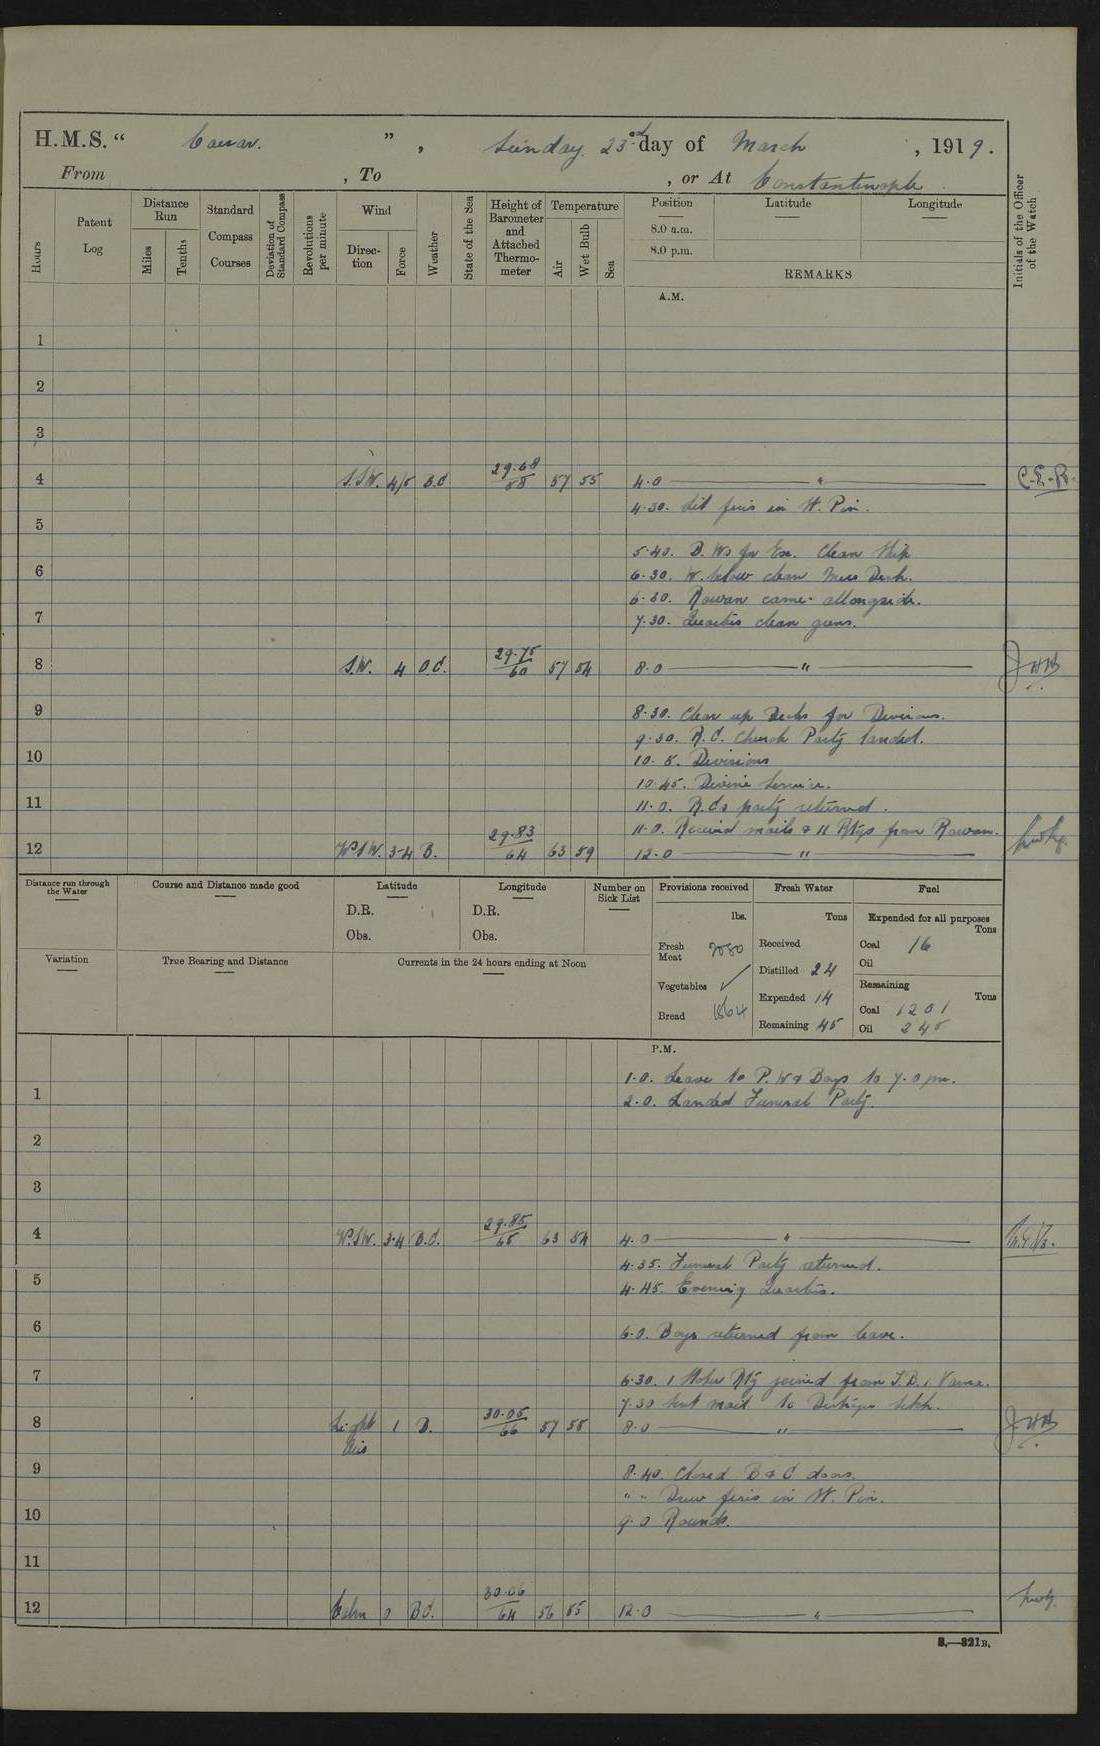 H.M.S. “ Caesar. ” , Sunday 23rd day of March , 1919.
From , To , or At Constantinople
Hours
Patent Log
Distance Run
Miles
Tenths
Standard Compass Courses
Deviation of Standard Compass
Revolutions per minute
Wind
Direc-tion
Force
Weather
State of the Sea
Height of Barometer and Attached Thermo-meter
Temperature
Air
Wet Bulb
Sea
Position
8.0 a.m.
8.0 p.m.
Latitude
Longitude
REMARKS
Initials of the Officer of the Watch
A.M.
1
2
3
4 S.SW. 4/5 B.C 29.68/58 57 55 4.0 — " — C.E.R.
4.30. Lit fires in W. Pin.
5
5.40. B. Ws for Ex. Clean Ship
6 6.30. W. below clean Mess Deck.
6.30. Rowan came alongside.
7 7.30. Quarters clean guns.
8 S.W. 4 O.C. 29.75/60 57 54 8.0 — " —
9 8.30. Clear up Decks for Divisions.
9.30. R.C. Church Party landed.
10 10.5. Divisions
10.45. Divine Service.
11 11.0. R.Cs party returned.
11.0. Received mails & 11 Rtgs from Rowan.
12 W.SW. 3-4 B. 29.83/64 63 59 12.0 — " —
Distance run through the Water
Course and Distance made good
Latitude
D.R.
Obs.
Longitude
D.R.
Obs.
Number on Sick List
Variation
True Bearing and Distance
Currents in the 24 hours ending at Noon
Provisions received
lbs.
Fresh Meat 2080
Vegetables ✓
Bread 1864
Fresh Water
Tons
Received
Distilled 24
Expended 14
Remaining 45
Fuel
Expended for all purposes
Tons
Coal 16
Oil
Remaining
Tons
Coal 1201
Oil 245
P.M.
1.0. Leave to P.W & Boys to 7.0 pm.
1
2.0. Landed Funeral Party.
2
3
4 W.SW. 3-4 B.C. 29.85/65 63 54 4.0 — " —
4.35. Funeral Party returned.
5 4.45. Evening Quarters.
6 6.0. Boys returned from leave.
7 6.30. 1 Stoker Rtg joined from
7.30 Sent mail to
8 Light Airs 1 B. 30.05/66 57 55 8.0 — " —
9 8.40. Closed B & C doors.
" " Drew fires in W. Pin.
10 9.0 Rounds.
11
12 Calm 0 BC. 30.06/64 56 55 12.0 — " —
S.—321B.